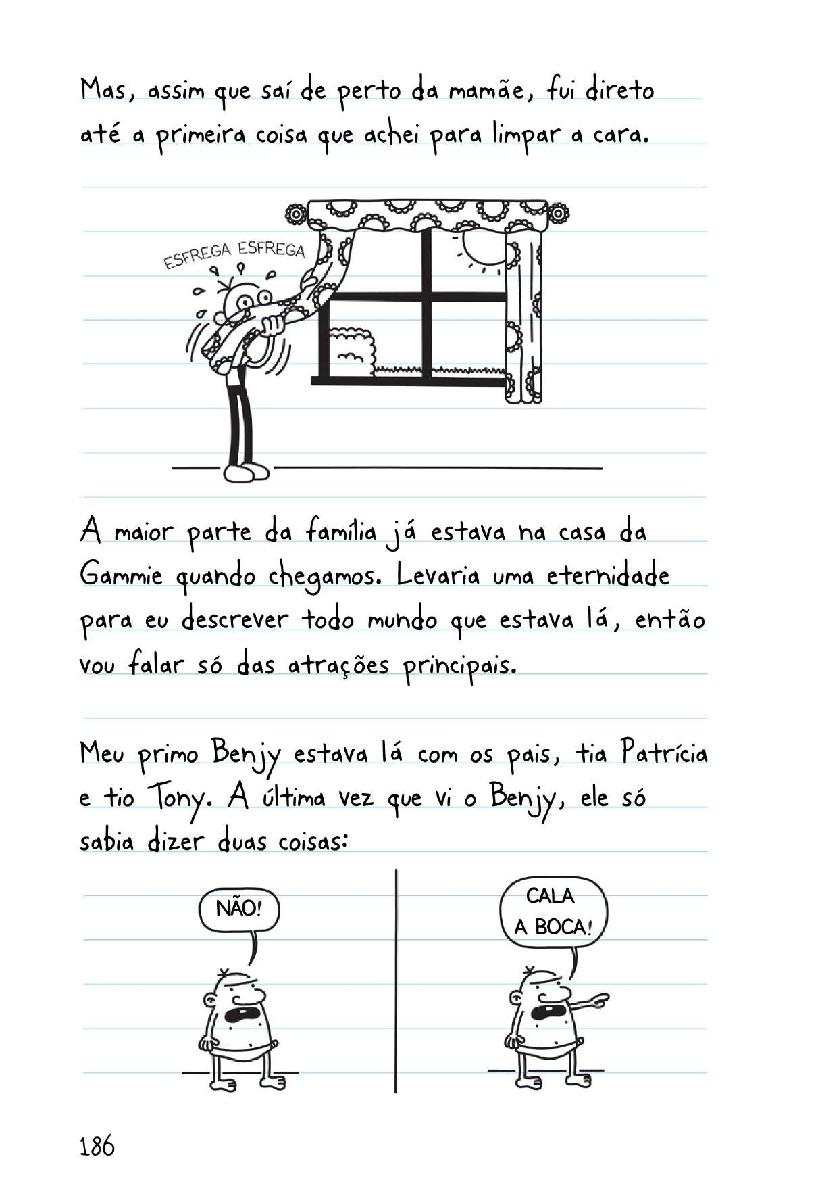 Mas, assim que saí de perto da mamãe, fui direto
até a primeira coisa que achei para limpar a cara.
ESFREGA ESFREGA
A maior parte da família já estava na casa da
Gammie quando chegamos. Levaria uma eternidade
para eu descrever todo mundo que estava lá, então
vou falar só das atrações principais.
Meu primo Benjy estava lá com os pais, tia Patrícia
e tio Tony. A última vez que vi o Benjy, ele só
sabia dizer duas coisas:
NÃO!
CALA
A BOCA!
186